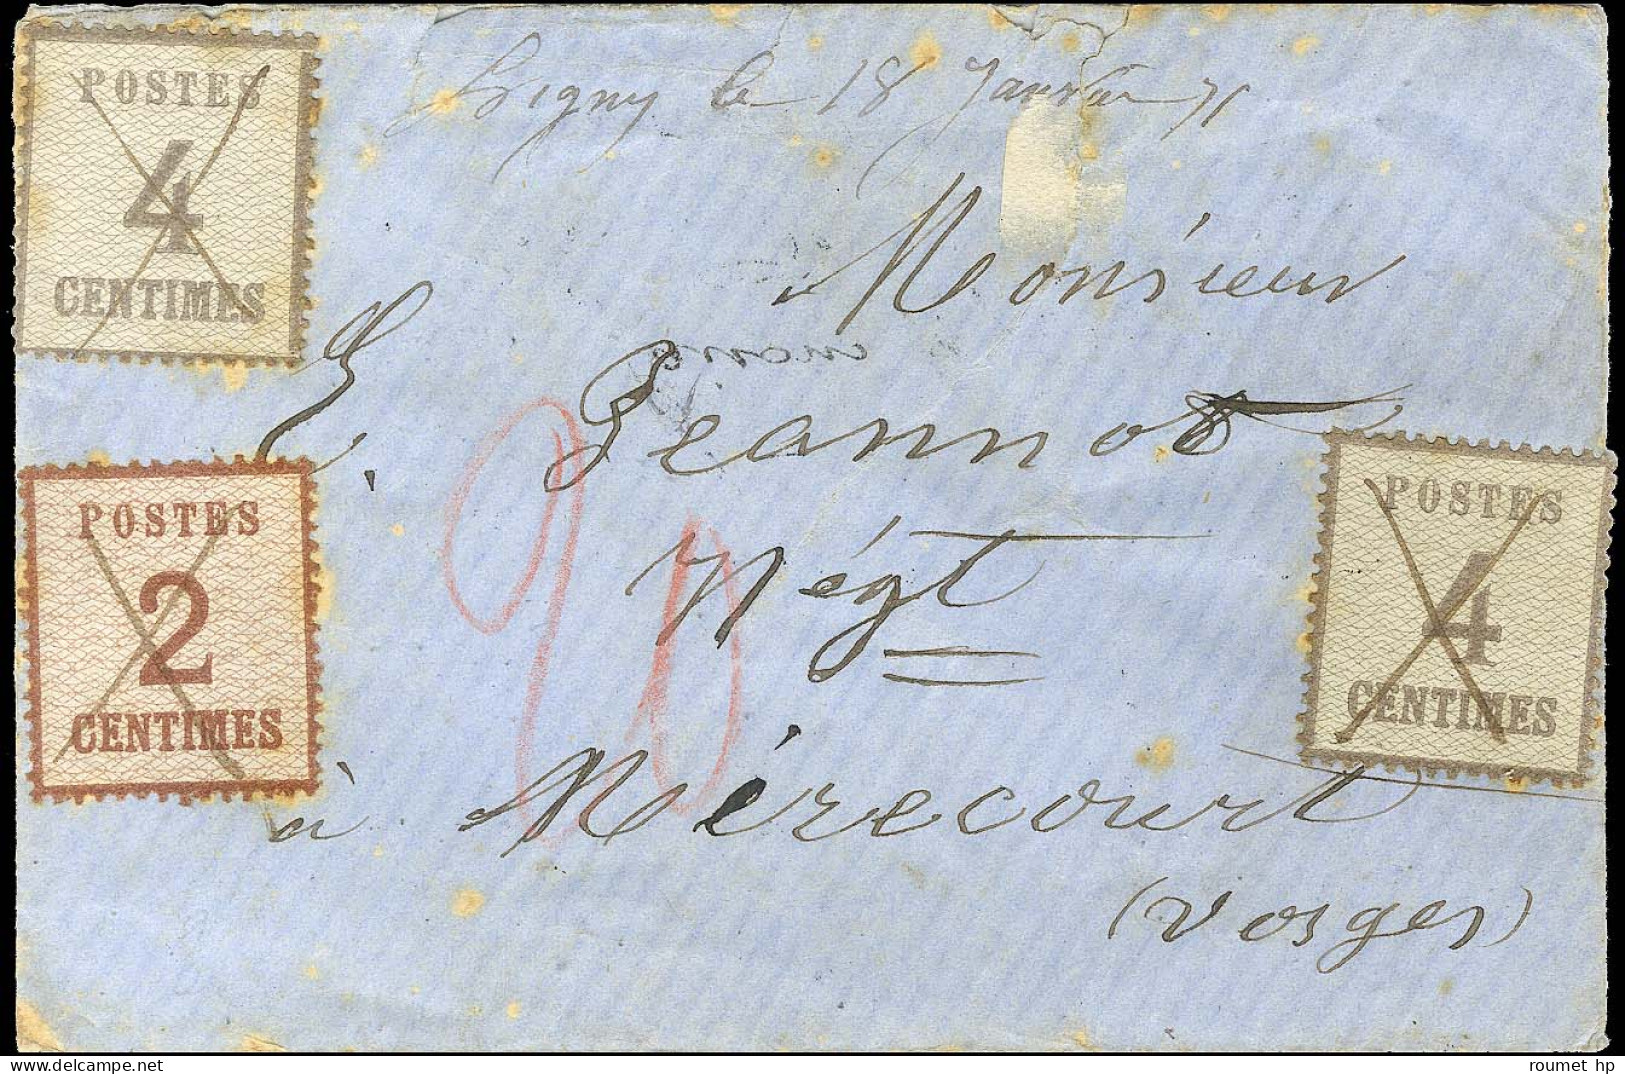 Ligny le 18 Janvier 71
POSTES
4
CENTIMES
Monsieur
E. Jeannot
Négt
POSTES
2
CENTIMES
20
POSTES
4
CENTIMES
à Mirecourt
(Vosges)
roumet hp